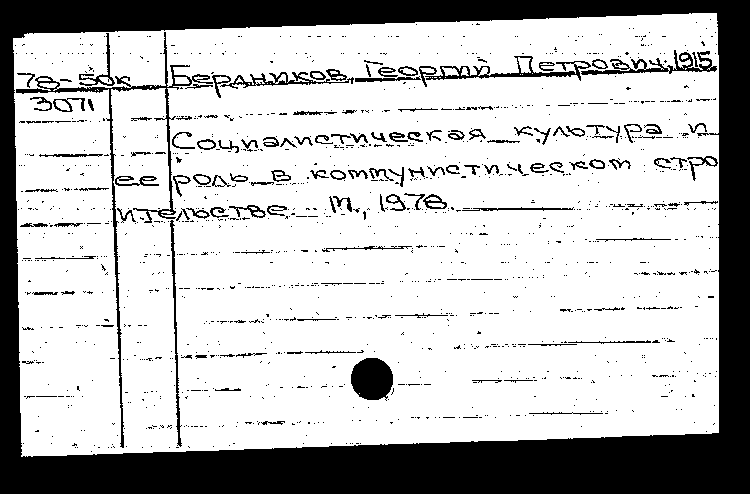 78-50к Бердников, Георгий Петрович, 1915
3071
Социалистическая культура и
ее роль в коммунистическом стро
ительстве. М., 1978.